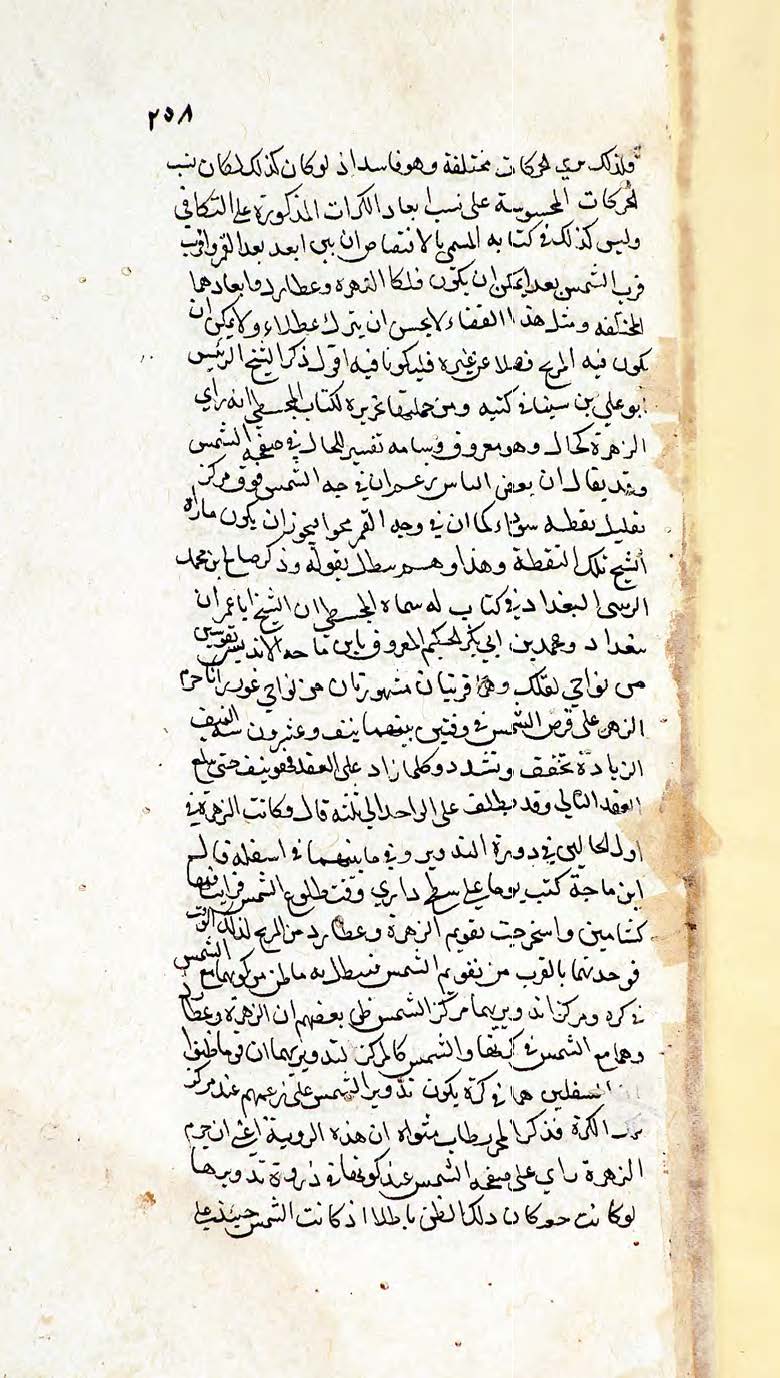 ٢٥٨
ولذلك نري الحركات مختلفة وهو فاسد اذ لو كان كذلك لكان نسب
الحركات المحسوسة على نسب ابعاد الكرات المذكورة على التكافي
وليس كذلك في كتابه المسمى بالاقتصاص ان بين ابعد بعد القمر واقرب
قرب الشمس بعد ايمكن ان يكون فلكا الزهرة وعطارد وابعادهما
المختلفه ومثل هذا الفضاء لا يحسن ان يترك عطلاء ولا يمكن ان
يكون فيه المريخ فضلا عن غيره فليكونا فيه اقول ذكر الشيخ الرئيس
ابو علي بن سينا في كتبه ومن جملتها تحريره لكتاب المجسطي انه راي
الزهرة كخال وهو معروف وشامه تفسير للخال في صفحه الشمس
وقد يقال ان بعض الناس زعم ان في وجه الشمس فوق مركز
بقليل نقطه سوداء كما ان في وجه القمر محوا فيجوز ان يكون ماراه
الشيخ تلك النقطة وهذا وهم يبطل بقوله وذكر صالح بن محمد
البغدادي في كتاب له سماه المجسطي ان الشيخ ابا عمران
ببغداد ومحمد بن ابي بكر الحكيم المعروف بابن ماجه الاندلسي
من نواحي وهما قريتان مشهورتان من نواحي رايا جرم
الزهرة على قرص الشمس في وقتين بينهما نيف وعشرون سنه النيف
الزيادة تخفف وتشدد وكلما زاد على العقد فهو نيف حتى يبلغ
العقد الثاني وقد يطلق على الواحد الى ثلثه قال وكانت الزهرة في
اول الحالين في ذروة التدوير وفي ثانيهما في اسفله قال
ابن ماجة كنت يوما على سطح داري وقت طلوع الشمس فرايت فيها
كشامتين واستخرجت تقويم الزهرة وعطارد من الزيج لذلك الوقت
فوجدتهما بالقرب من تقويم الشمس فيبطل به ما ظن من كونهما مع الشمس
في كرة ومركز تدويريهما مركز الشمس ظن بعضهم ان الزهرة وعطارد
وهما مع الشمس في كرتها والشمس كالمركز لتدويريهما ان قوما ظنوا
ان السفلين هما في كرة يكون تدوير الشمس على زعمهم عند مركز
تلك الكرة فذكر ان هذه الروية اعني ان جرم
الزهرة راي على صفحه الشمس عند كونها في ذروة تدويرها
لو كانت حقا كان ذلك الظن باطلا اذ كانت الشمس حينئذ على